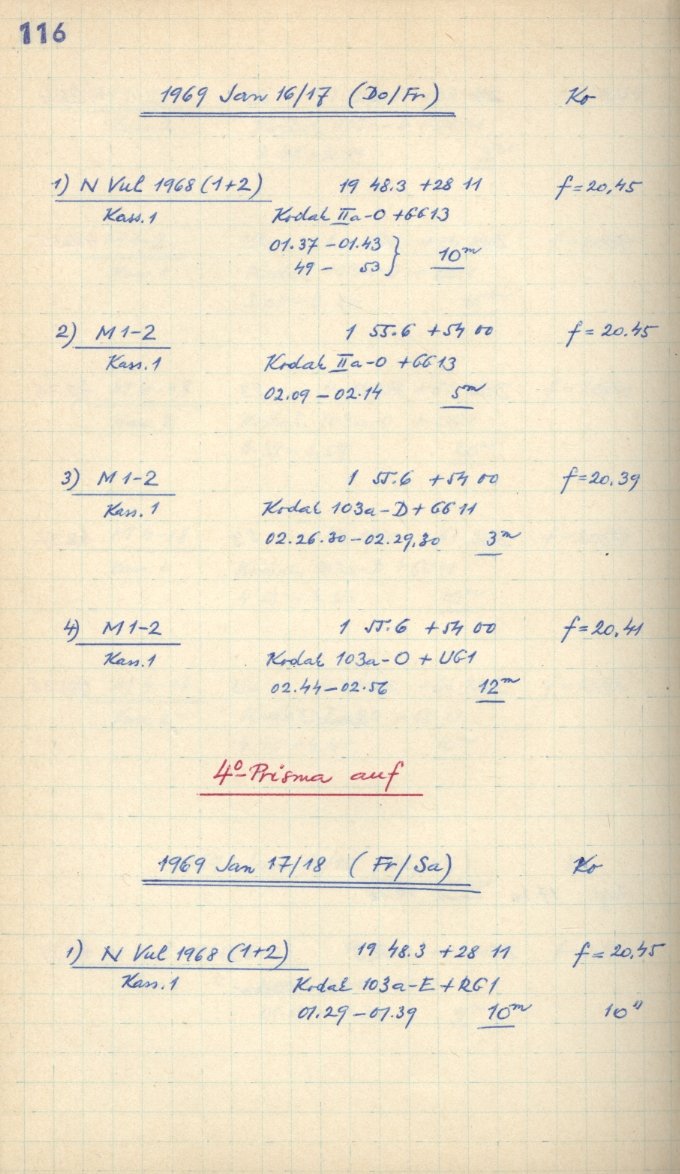 116
1969 Jan 16/17 (Do/Fr) Ko
1) N Vul 1968 (1+2) 19 48.3 +28 11 f=20,45
Kass.1 Kodak IIa-O +GG13
01.37 - 01.43
49 - 53 } 10ᵐ
2) M 1-2 1 55.6 +54 00 f=20.45
Kass.1 Kodak IIa-O +GG13
02.09 - 02.14 5ᵐ
3) M 1-2 1 55.6 +54 00 f=20.39
Kass.1 Kodak 103a-D + GG 11
02.26.30 - 02.29,30 3ᵐ
4) M 1-2 1 55.6 +54 00 f=20,41
Kass.1 Kodak 103a-O + UG1
02.44 - 02.56 12ᵐ
4°-Prisma auf
1969 Jan 17/18 (Fr/Sa) Ko
1) N Vul 1968 (1+2) 19 48.3 +28 11 f=20,45
Kass.1 Kodak 103a-E + RG1
01.29 - 01.39 10ᵐ 10"